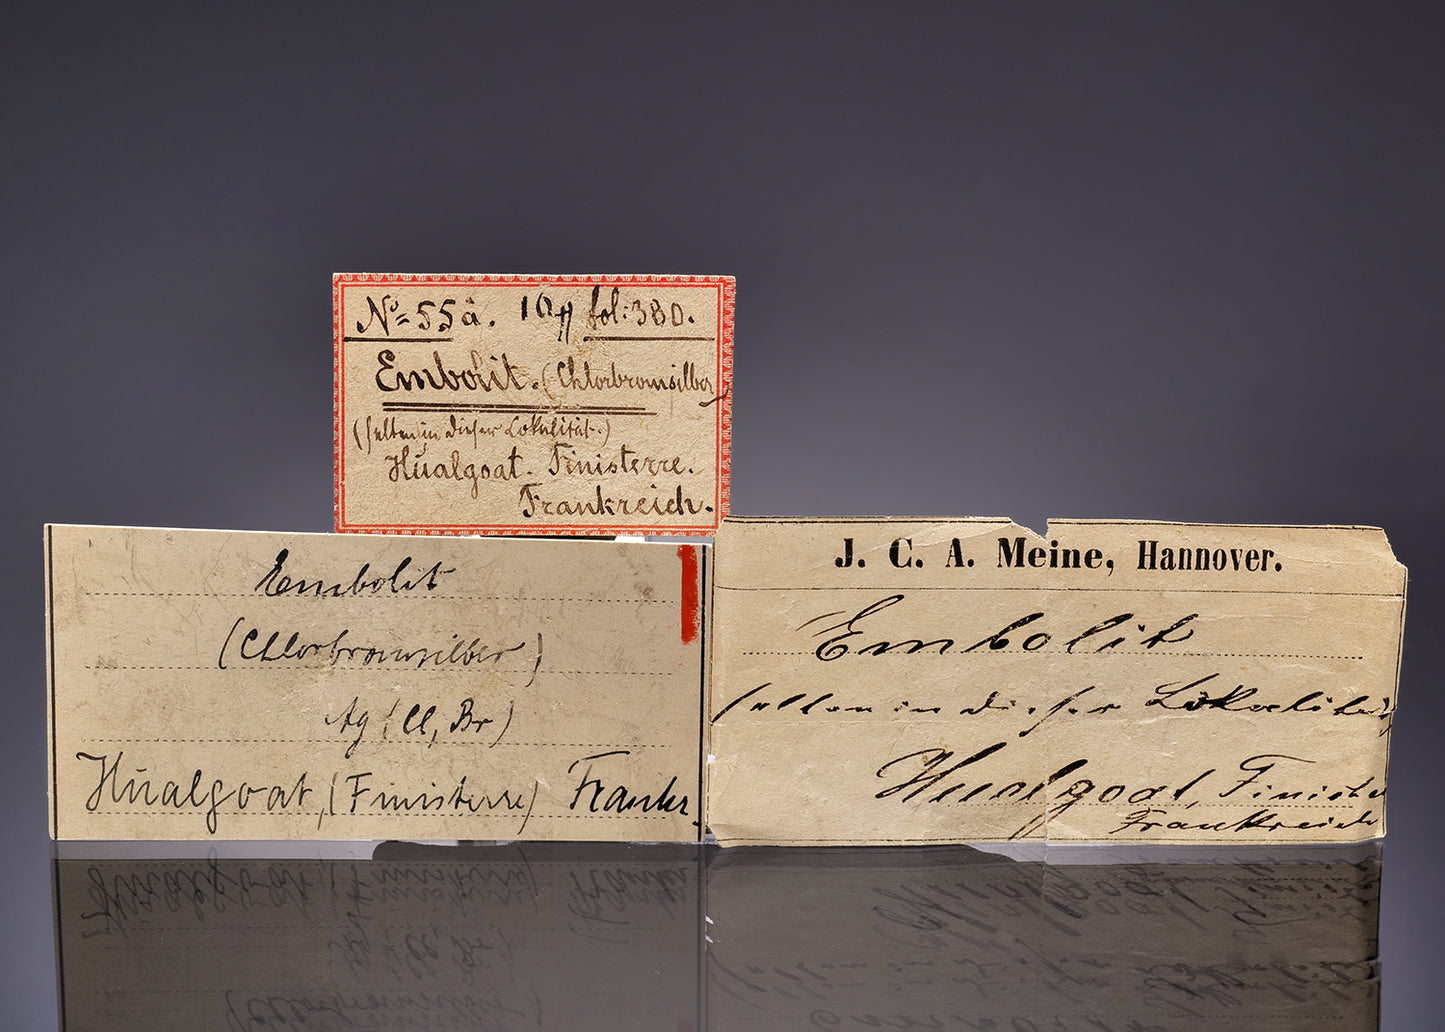 No 55a. 10 fol: 380.
Embolit. (Chlorbromsilber)
(selten in dieser Lokalität.)
Hüalgoat. Finisterre.
Frankreich.
Embolit
(Chlorbromsilber)
Ag (Cl, Br)
Hüalgoat, (Finisterre) Frankr.
J. C. A. Meine, Hannover.
Embolit
selten in dieser Lokalität
Hualgoat, Finiste
Frankreich